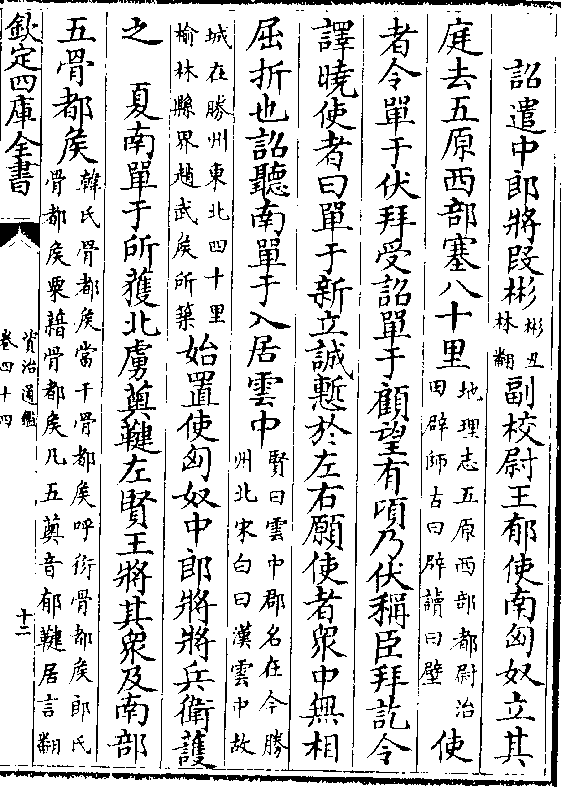 詔遣中郎將段彬彬丑林翻副校尉王郁使南匈奴立其
庭去五原西部塞八十里地理志五原西部都尉治田辟師古曰辟讀曰壁使
者令單于伏拜受詔單于顧望有頃乃伏稱臣拜訖令
譯曉使者曰單于新立誠慙於左右願使者衆中無相
屈折也詔聽南單于入居雲中賢曰雲中郡名在今勝州北宋白曰漢雲中故
城在勝州東北四十里榆林縣界趙武侯所築始置使匈奴中郎將將兵衛護
之　夏南單于所獲北虜薁鞬左賢王將其衆及南部
五骨都侯韓氏骨都侯當于骨都侯呼衍骨都侯郎氏骨都侯粟藉骨都侯凡五薁音郁鞬居言翻
欽定四庫全書
資治通鑑
卷四十四
十二